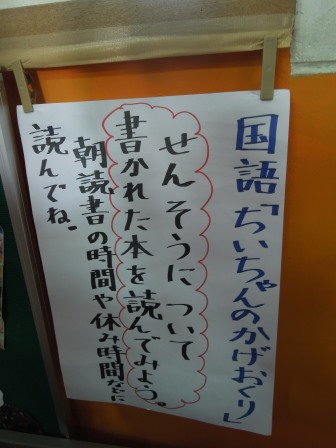 国語「ちいちゃんのかげおくり」
せんそうについて
書かれた本を読んでみよう。
朝読書の時間や休み時間などに
読んでね。